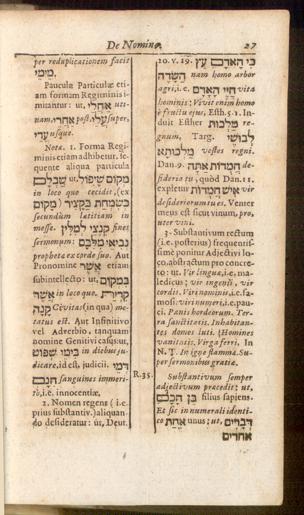 De Nomine. 27
per reduplicationem facit
מימי
Paucula Particulæ eti-
am formam Regiminis i-
mitantur: ut, אחלי uti-
nam, אחרי post, עלי super,
עדי usque.
Nota. 1. Forma Regi-
minis etiam adhibetur, se-
quente aliqua particula
ut שבלכם מקום שיפול
in loco quo cecidit, (ex
כשמחת בקציר (מקום
secundum lætitiam in
messe. קנצי למלין fines
sermonum: נביאי מלבם
prophetæ ex corde suo. Aut
Pronomine אשר etiam
subintellecto: ut, במקום
אשר in loco quo. קרית
חנה Civitas (in qua) me-
tatus est. Aut Infinitivo
vel Adverbio, tanquam
nomine Genitivi casus: ut,
בימי שפוט in diebus ju-
dicare, id est, judicii. דמי
חנם sanguines immeri-
to, i.e. innocentiæ.
2. Nomen regens (i.e.
prius substantiv.) aliquan-
do desideratur: ut, Deut.
R. 35.
20. v. 19. כי האדם עץ
השדה nam homo arbor
agri, i.e. חיי האדם vita
hominis: Vivit enim homo
è fructu ejus, Esth. 5. 1. In-
duit Esther מלכות re-
gnum, Targ. לבושי
מלכותא vestes regni.
Dan. 9. חמדות אתה de-
sideria tu, quòd Dan. 11.
expletur איש חמדות vir
desideriorum tu es. Venter
meus est sicut vinum, pro,
uter vini.
3. Substantivum rectum
(i.e. posterius) frequentis-
simè ponitur Adjectivi lo-
co, abstractum pro concre-
to: ut, Vir linguæ, i.e. ma-
ledicus; vir ingenti, vir
cordis. Viri nominis, i.e. fa-
mosi: viri numeri, i.e. pau-
ci. Panis hordeorum. Ter-
ra sanctitatis. Inhabitan-
tes domos luti. Homines
vanitatis. Virga ferri. In
N. T. In igne flammæ. Su-
per sermonibus gratiæ.
Substantivum semper
adjectivum præcedit: ut,
בן חכם filius sapiens.
Et sic in numerali identi-
co אחת unus; ut, דברים
אחדים